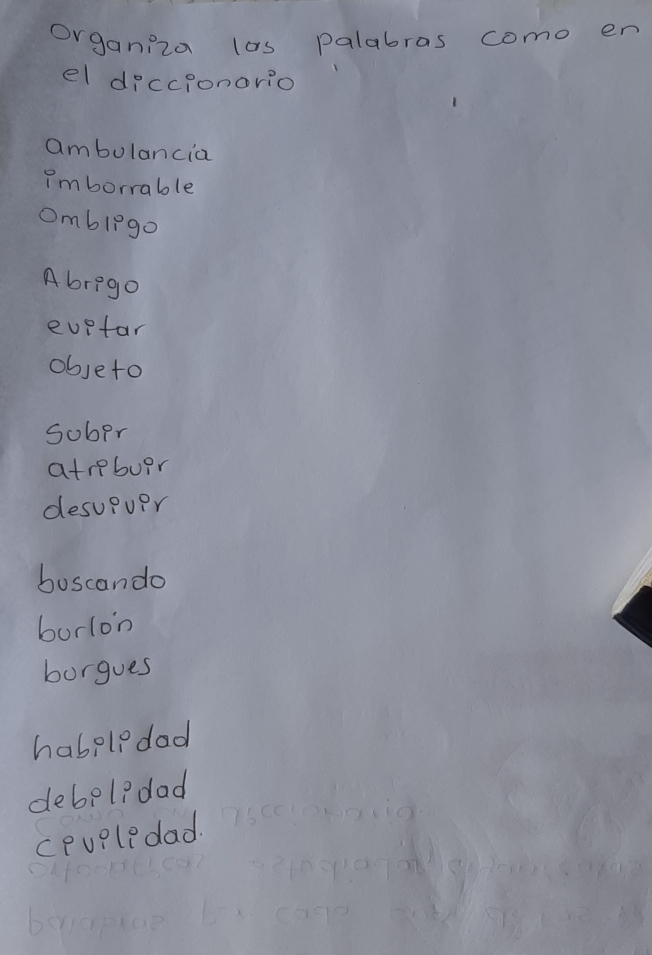 Organiza las palabras como en
el diccionario
ambulancia
imborrable
Ombligo
Abrigo
evitar
objeto
subir
atribuir
desvivir
buscando
burlón
burgues
habilidad
debilidad
civilidad.